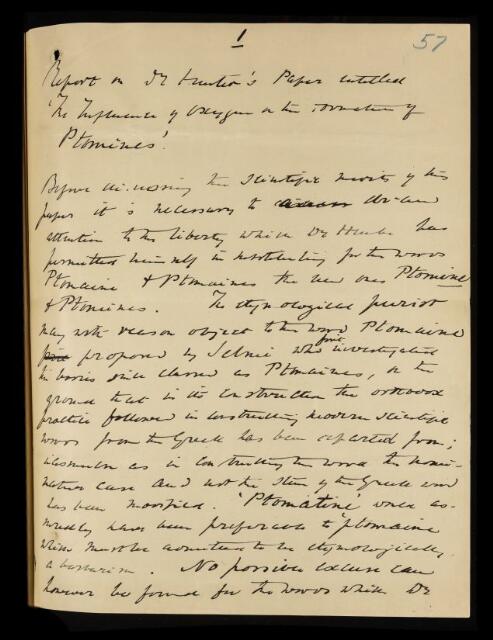 1
57
Report on Dr Hunter's Paper entitled
'The Influence of Oxygen on the Formation of
Ptomines'.
Before discussing the Scientific merits of this
paper it is necessary to direct
attention to the liberty which Dr Hunter has
permitted himself in substituting for the words
Ptomaine & Ptomaines the new ones Ptomine
& Ptomines. The etymological purist
may with reason object to the word Ptomaine
first proposed by Selmi who first investigated
the bodies since classed as Ptomaines, on the
ground that in its construction the orthodox
practice followed in constructing modern scientific
words from the Greek has been departed from;
inasmuch as in constructing the word the nomi-
native case and not the stem of the Greek word
has been modified. 'Ptomatine' would as-
suredly have been preferable to ptomaine
which must be admitted to be etymologically
a barbarism. No possible excuse can
however be found for the words which Dr